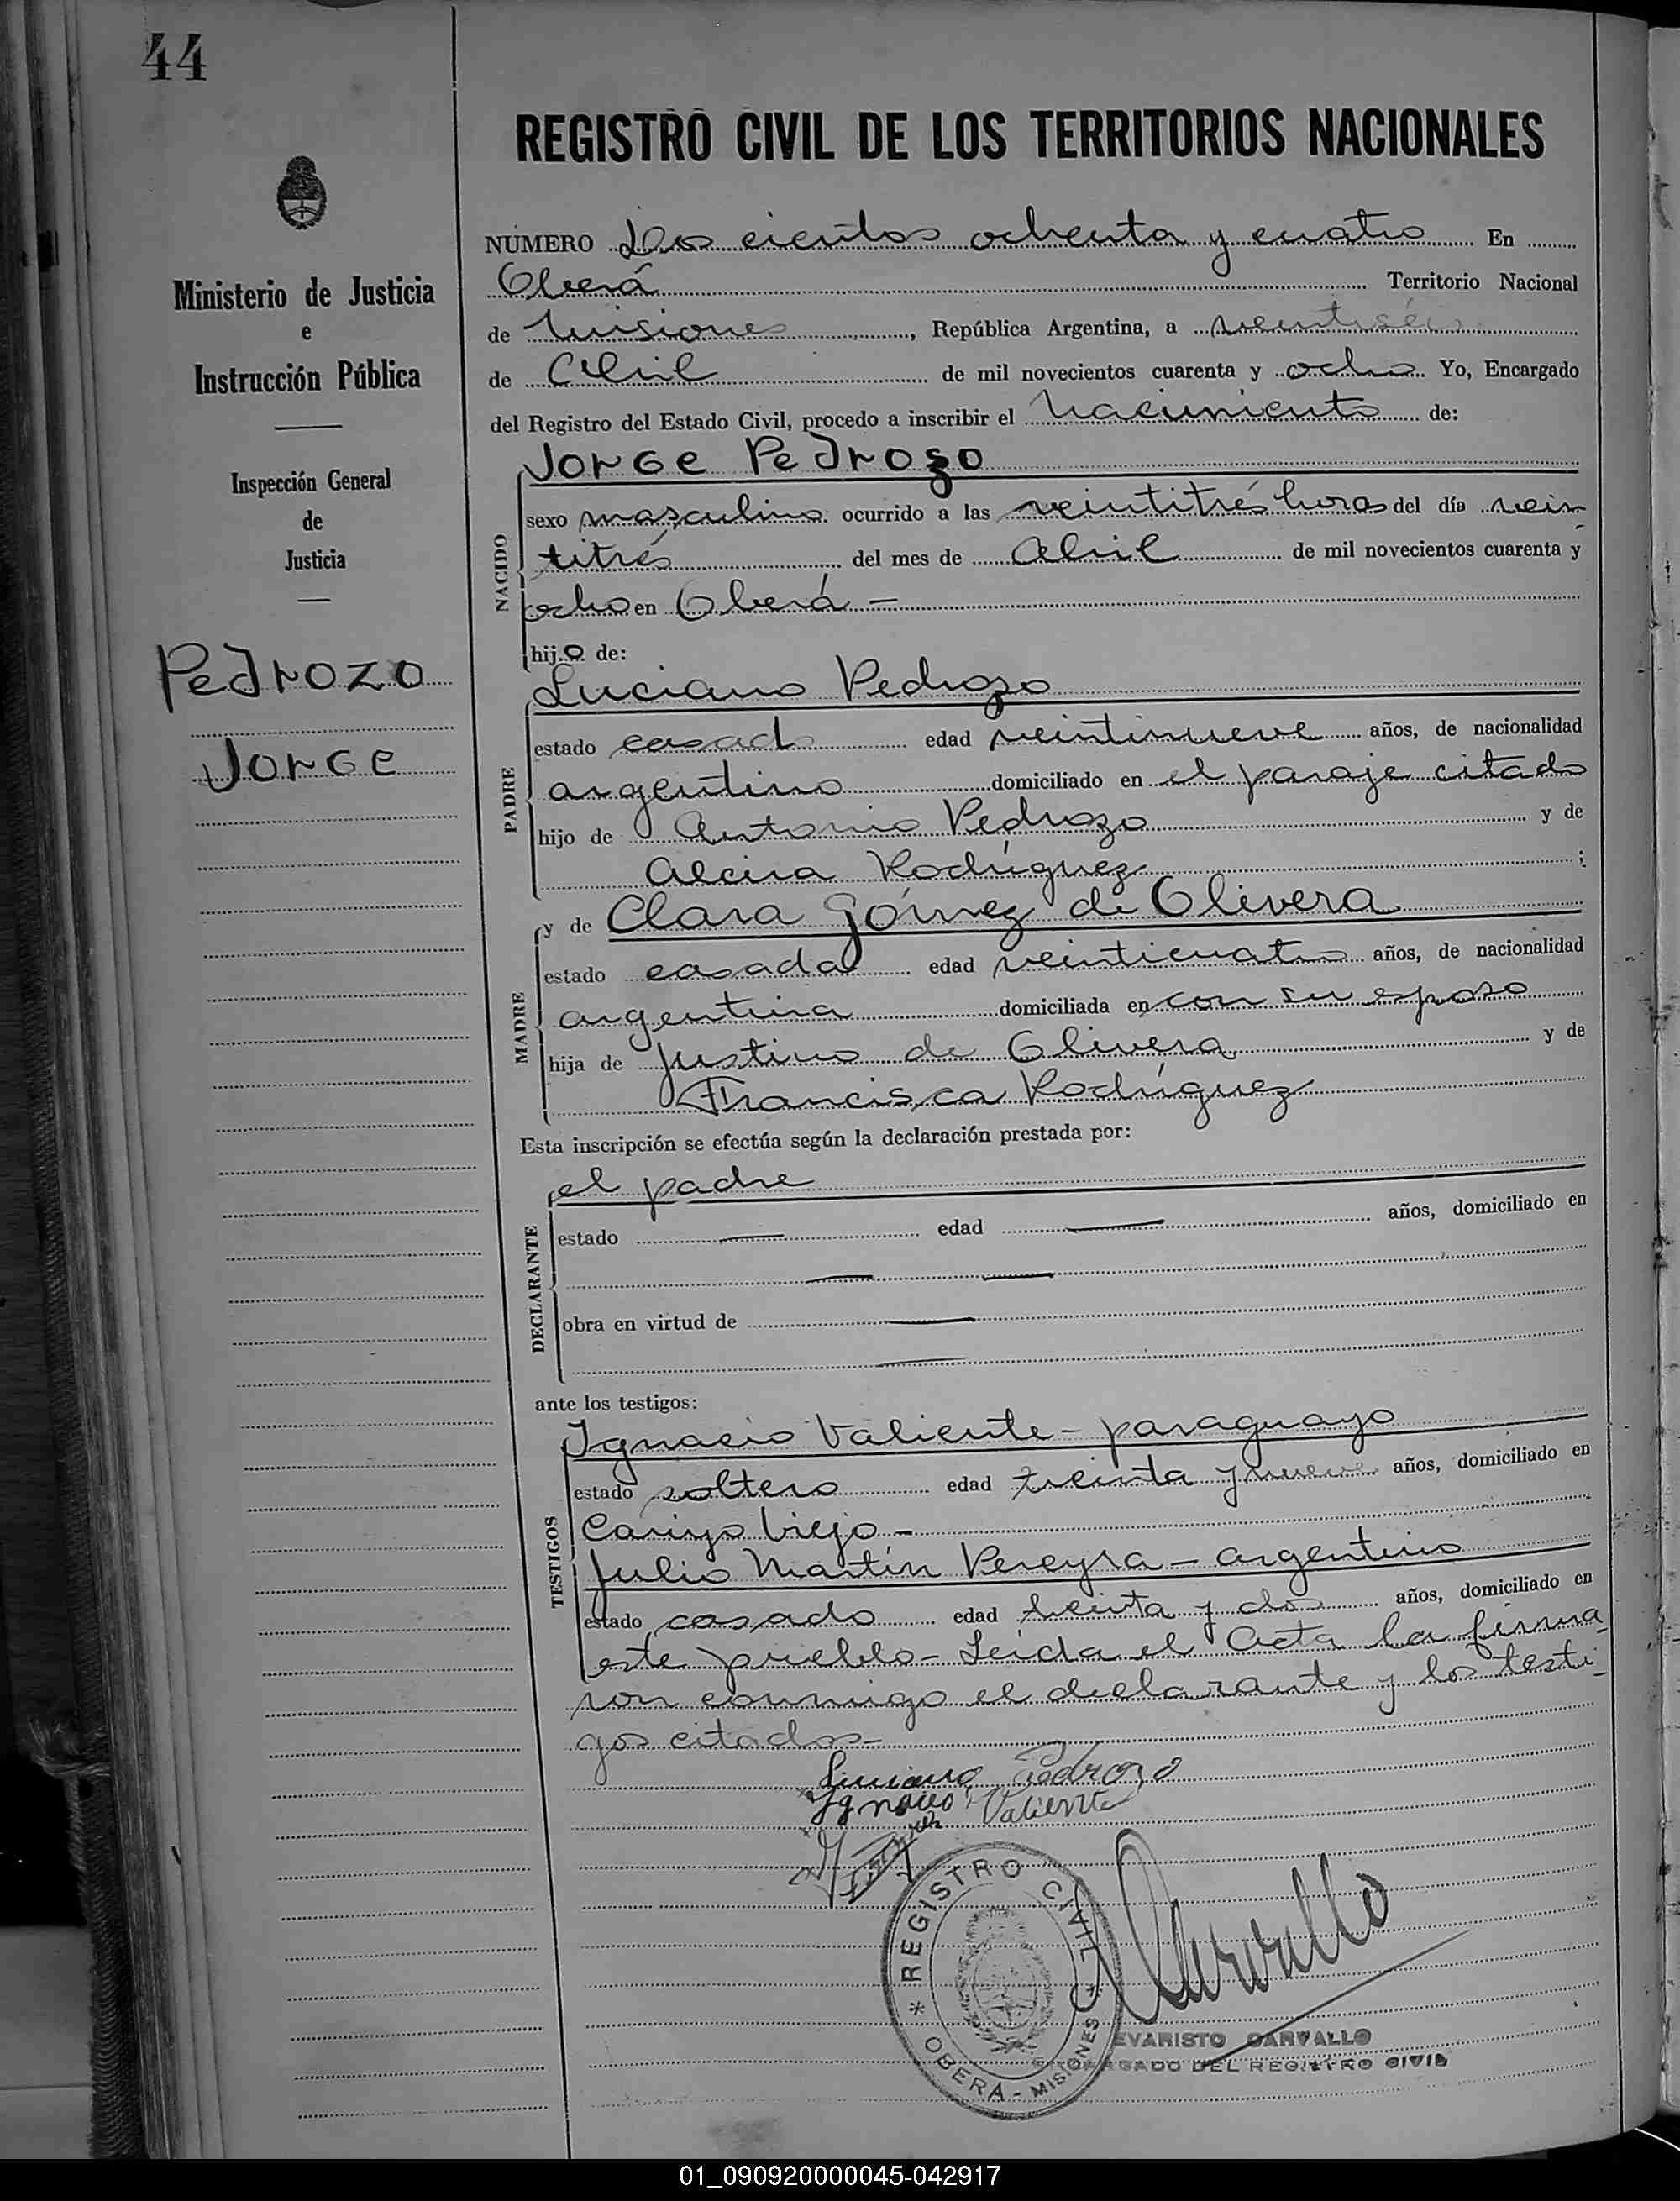 44
REGISTRO CIVIL DE LOS TERRITORIOS NACIONALES
Ministerio de Justicia
e
Instrucción Pública
Inspección General
de
Justicia
Pedrozo
Jorge
NÚMERO Dos cientos ochenta y cuatro En
Oberá Territorio Nacional
de Misiones, República Argentina, a veintiséis
de Abril de mil novecientos cuarenta y ocho Yo, Encargado
del Registro del Estado Civil, procedo a inscribir el nacimiento de:
Jorge Pedrozo
NACIDO
sexo masculino ocurrido a las veintitrés horas del día vein
titrés del mes de abril de mil novecientos cuarenta y
ocho en Oberá -
hijo de:
Luciano Pedrozo
PADRE
estado casado edad veintinueve años, de nacionalidad
argentino domiciliado en el paraje citado
hijo de Antonio Pedrozo y de
Alcira Rodríguez;
y de Clara Gómez de Olivera
MADRE
estado casada edad veinticuatro años, de nacionalidad
argentina domiciliada en con su esposo
hija de Justino de Olivera y de
Francisca Rodríguez
Esta inscripción se efectúa según la declaración prestada por:
el padre
DECLARANTE
estado — edad — años, domiciliado en
— —
obra en virtud de —
—
ante los testigos:
Ignacio Valiente - paraguayo
TESTIGOS
estado soltero edad treinta y nueve años, domiciliado en
Viejo -
Julio Martín Pereyra - argentino
estado casado edad treinta y dos años, domiciliado en
este pueblo - Leída el Acta la firma
ron conmigo el declarante y los testi-
gos citados -
Luciano Pedrozo
Ignacio Valiente
Carvallo
* REGISTRO CIVIL *
OBERÁ - MISIONES
EVARISTO CARVALLO
ENCARGADO DEL REGISTRO CIVIL
01_090920000045-042917